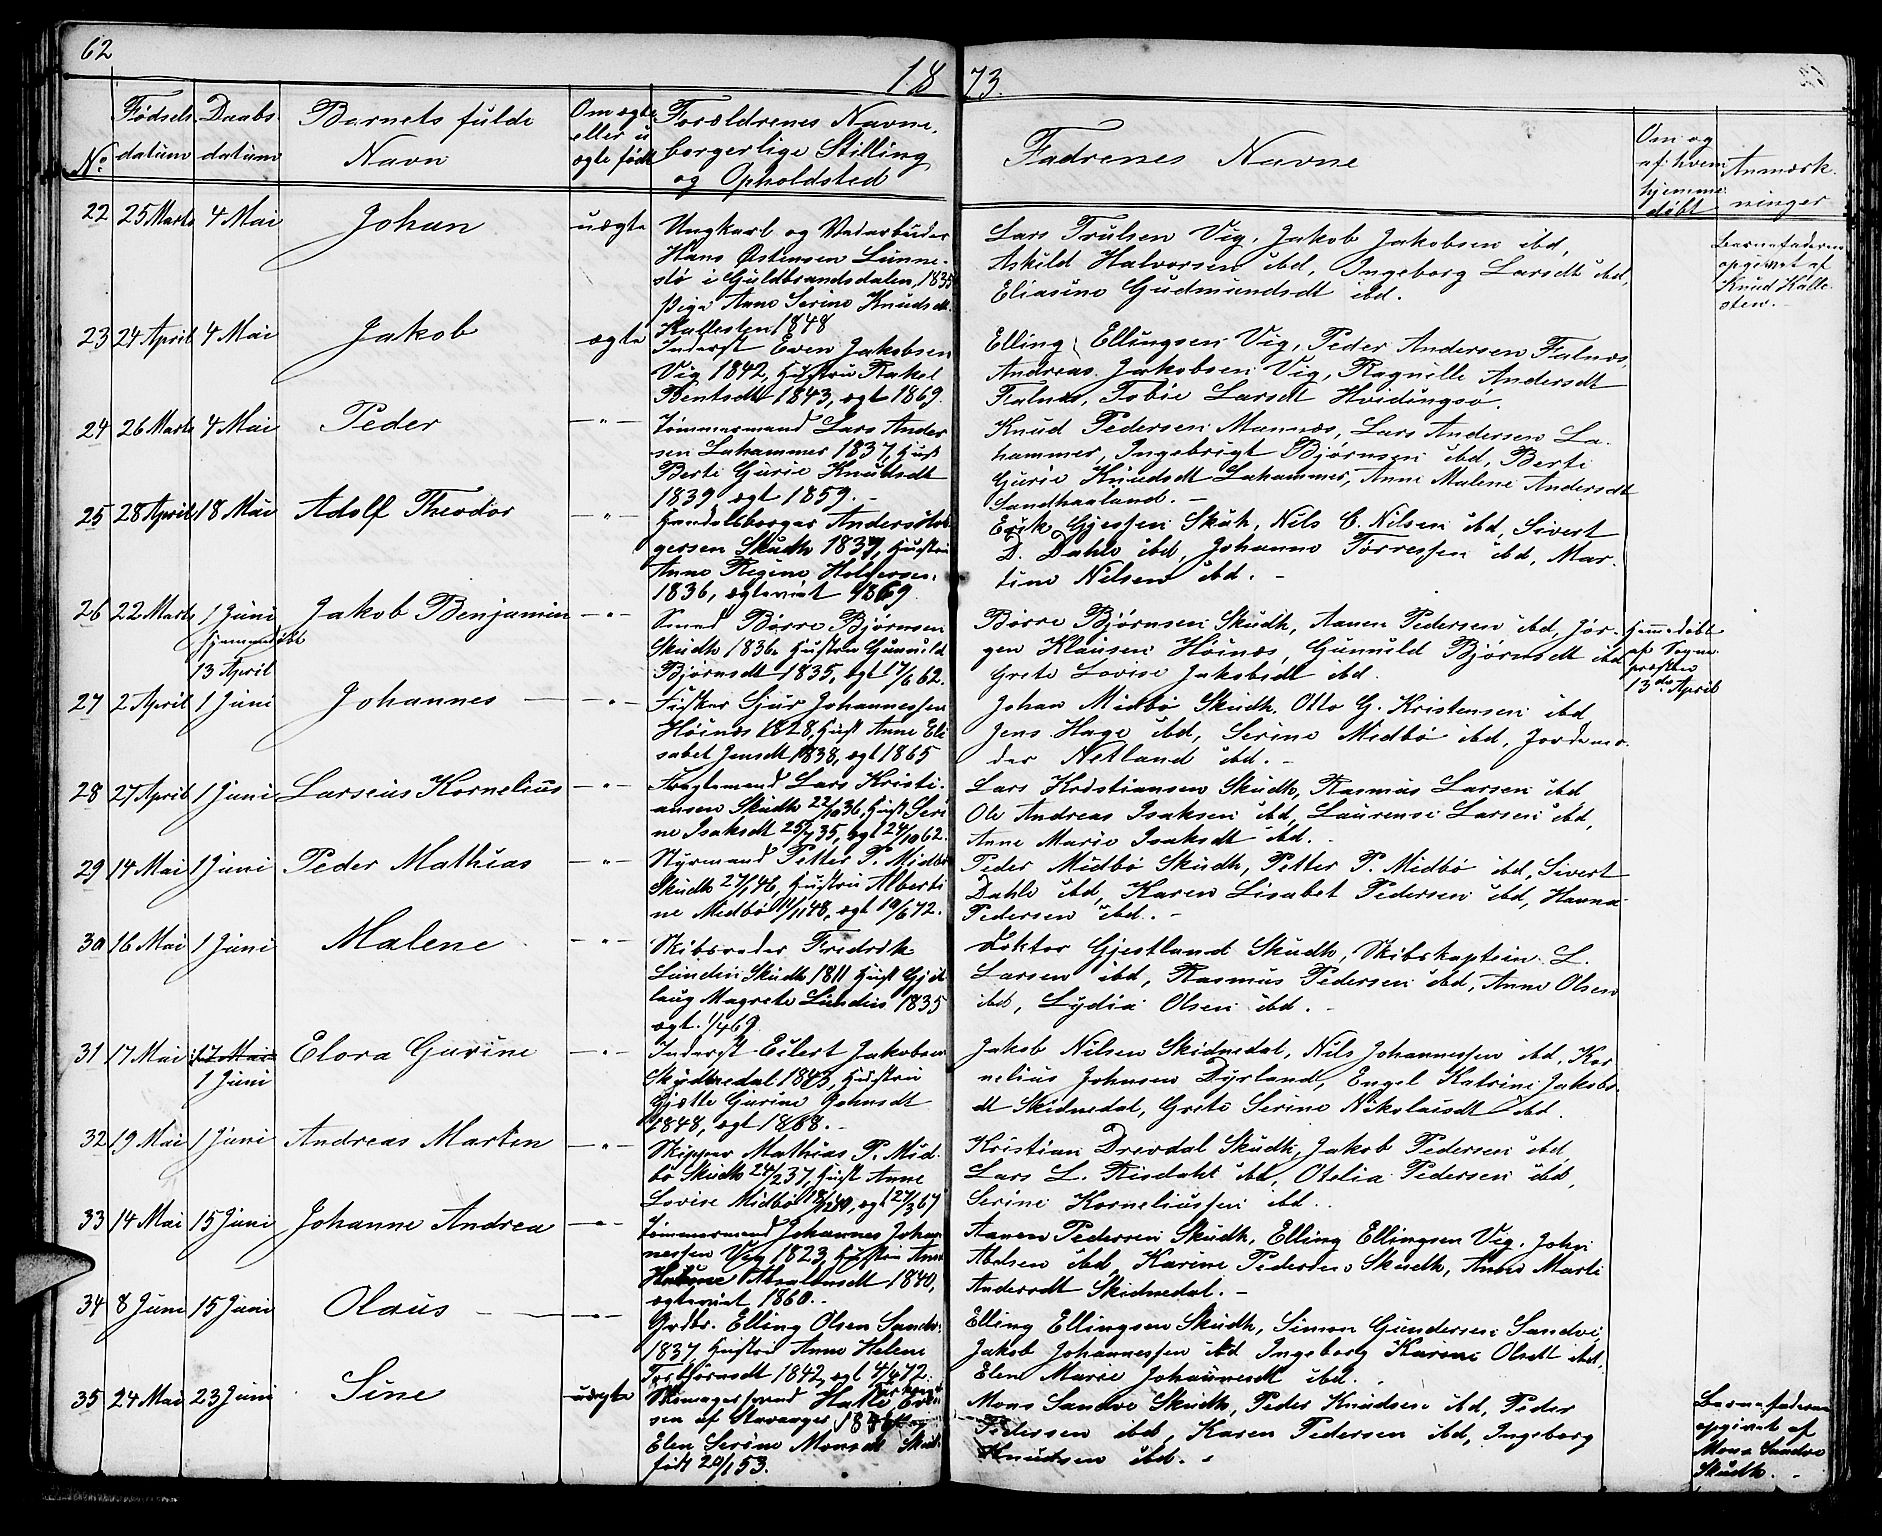 62
18
73.
No
Fødsels
datum
Daabs
datum
Barnets fulde
Navn
Om ægte
eller u
ægte født
Forældrenes Navne,
borgerlige Stilling
og Opholdsted
Fadrenes Navne
Om og
af hvem
hjemme
døbt
Anmærk.
ninger
22 25 Marts 4 Mai Johan uægte
Ungkarl og
Hans Østensen Lunne-
stø i Guldbrandsdalen, 1835
Pige Anne Serine Knudsdt.
Kallesten 1848
Lars Trulsen Vig, Jakob Jakobsen ibd,
Askild Halvorsen ibd, Ingeborg Larsdt ibd,
Eliasine Gudmundsdt ibd.
Barnefaderen
opgivet af
Knud Kalle-
sten.-
23 24 April 4 Mai Jakob ægte
Inderst Even Jakobsen
Vig 1842, Hustru Rakel
Bentsdt 1843, ægt 1869.
Elling Ellingsen Vig, Peder Andersen Falnæs,
Andreas Jakobsen Vig, Ragnille Andersdt
Falnæs, Tobie Larsdt Hvidingsø.
24 26 Marts 4 Mai Peder -"-
Tømmermand Lars Ander
sen Lahammer 1837, Hust
Berte Gurie Knudsdt
1839 ægt 1859.-
Knud Pedersen Mannæs, Lars Andersen La-
hammer, Ingebrigt Bjørnsen ibd, Berte
Gurie Knudsdt Lahammer, Anne Malene Andersdt
Sandhaaland.-
25 28 April 18 Mai Adolf Theodor -"-
Handelsborger Anders Hol
gersen Skudh 1837, Hustru
Anne Regine Holgersen.
1836, ægteviet 1869.
Erik Gjessen Skuh, Nils C. Nilsen ibd, Sivert
D. Dahle ibd, Johanne Torressen ibd, Mar-
tine Nilsen ibd.-
26 22 Marts 1 Juni Jakob Benjamin -"-
hjemmedøbt
13 April
Smed Børre Bjørnsen
Skudh 1836, Hustru Gunnild
Bjørnsdt 1835, ægt 17/6 62.
Børre Bjørnsen Skudh, Aanen Pedersen ibd, Jør-
gen Klausen Høinæs, Gunnild Bjørnsdt ibd
Grete Lovise Jakobsdt ibd.
Hjemmedøbt
af Sogne
præsten
13de April
27 2 April 1 Juni Johannes -"-
Fisker Sjur Johannessen
Høinæs 1828, Hust Anne Eli
sabet Jensdt 1838, ægt 1865
Johan Midbø Skudh, Otto G. Kristensen ibd
Jens Hage ibd, Serine Midbø ibd, Jordemo-
der Netland ibd.-
28 27 April 1 Juni Larseius Kornelius -"-
Fragtemand Lars Kristi-
ansen Skudh 22/10 36, Hust Seri
ne Isaksdt 25/7 35, ægt 24/10 62.
Lars Kristiansen Skudh, Rasmus Larsen ibd
Ole Andreas Isaksen ibd, Laurense Larsen ibd,
Anne Marie Isaksdt ibd.-
29 14 Mai 1 Juni Peder Mathias -"-
Styrmand Petter P. Midbø
Skudh 27/1 46, Hustru Alberti
ne Midbø 11/11 48, ægt 19/6 72.
Peder Midbø Skudh, Petter P. Midbø ibd, Sivert
Dahle ibd, Karen Lisabet Pedersen ibd, Hanna
Pedersen ibd.-
30 16 Mai 1 Juni Malene -"-
Skibsreder Fredrik
Lundin Skudh 1811 Hust Gjød
laug Magrete Lundin 1835
ægt. 1/4 69
Doktor Gjestland Skudh, Skibskaptein L.
Larsen ibd, Rasmus Pedersen ibd, Anne Olsen
ibd, Lydia Olsen ibd.-
31 17 Mai 17 Mai Elora Gurine -"-
1 Juni
Inderst Eilert Jakobsen
Skydnedal 1843, Hustru
Gjætte Gurine Johnsdt
1848, ægt 1868.-
Jakob Nilsen Skidnedal, Nils Johannessen ibd, Kor
nelius Johnsen Dyrland, Engel Katrine Jakobs-
dt Skidnedal, Grete Serine Nikolaisdt ibd.
32 19 Mai 1 Juni Andreas Martin -"-
Skipper Mathias P. Mid-
bø Skudh 24/2 37, Hust Anne
Lovise Midbø 40, ægt 27/3 67
Kristian Drevdal Skudh, Jakob Pedersen ibd,
Lars L. Risdahl ibd, Otelia Pedersen ibd,
Serine Korneliussen ibd.
33 14 Mai 15 Juni Johanne Andrea -"-
Tømmermand Johannes Johan
nessen Vig 1823, Hustru Anne
Absalonsdt 1840,
ægteviet 1860.-
Aanen Pedersen Skudh, Elling Ellingsen Vig, John
Abelsen ibd, Karine Pedersen Skudh, Anne Marte
Andersdt Skidnedal.-
34 8 Juni 15 Juni Olaus -"-
Grdbr. Elling Olsen Sandv.
1837, Hustru Anne Helene
Torbjørnsdt 1842, ægt 4/4 72.
Elling Ellingsen Skudh, Simon Gundersen Sandve,
Jakob Johannessen ibd Ingeborg Karine Olsdt ibd,
Elen Marie Johannesdt ibd.
35 24 Mai 23 Juni Sine uægte
Skomagersvend Halle
sen af Stavanger, 18
Elen Serine Monsdt Skud.
født 20/1 53.
Mons Sandve Skudh, Peder Knudsen ibd, Peder
Pedersen ibd, Karen Pedersen ibd, Ingeborg
Knudsen ibd.-
Barnefaderen
opgivet af
Mons Sandve
Skudh.-